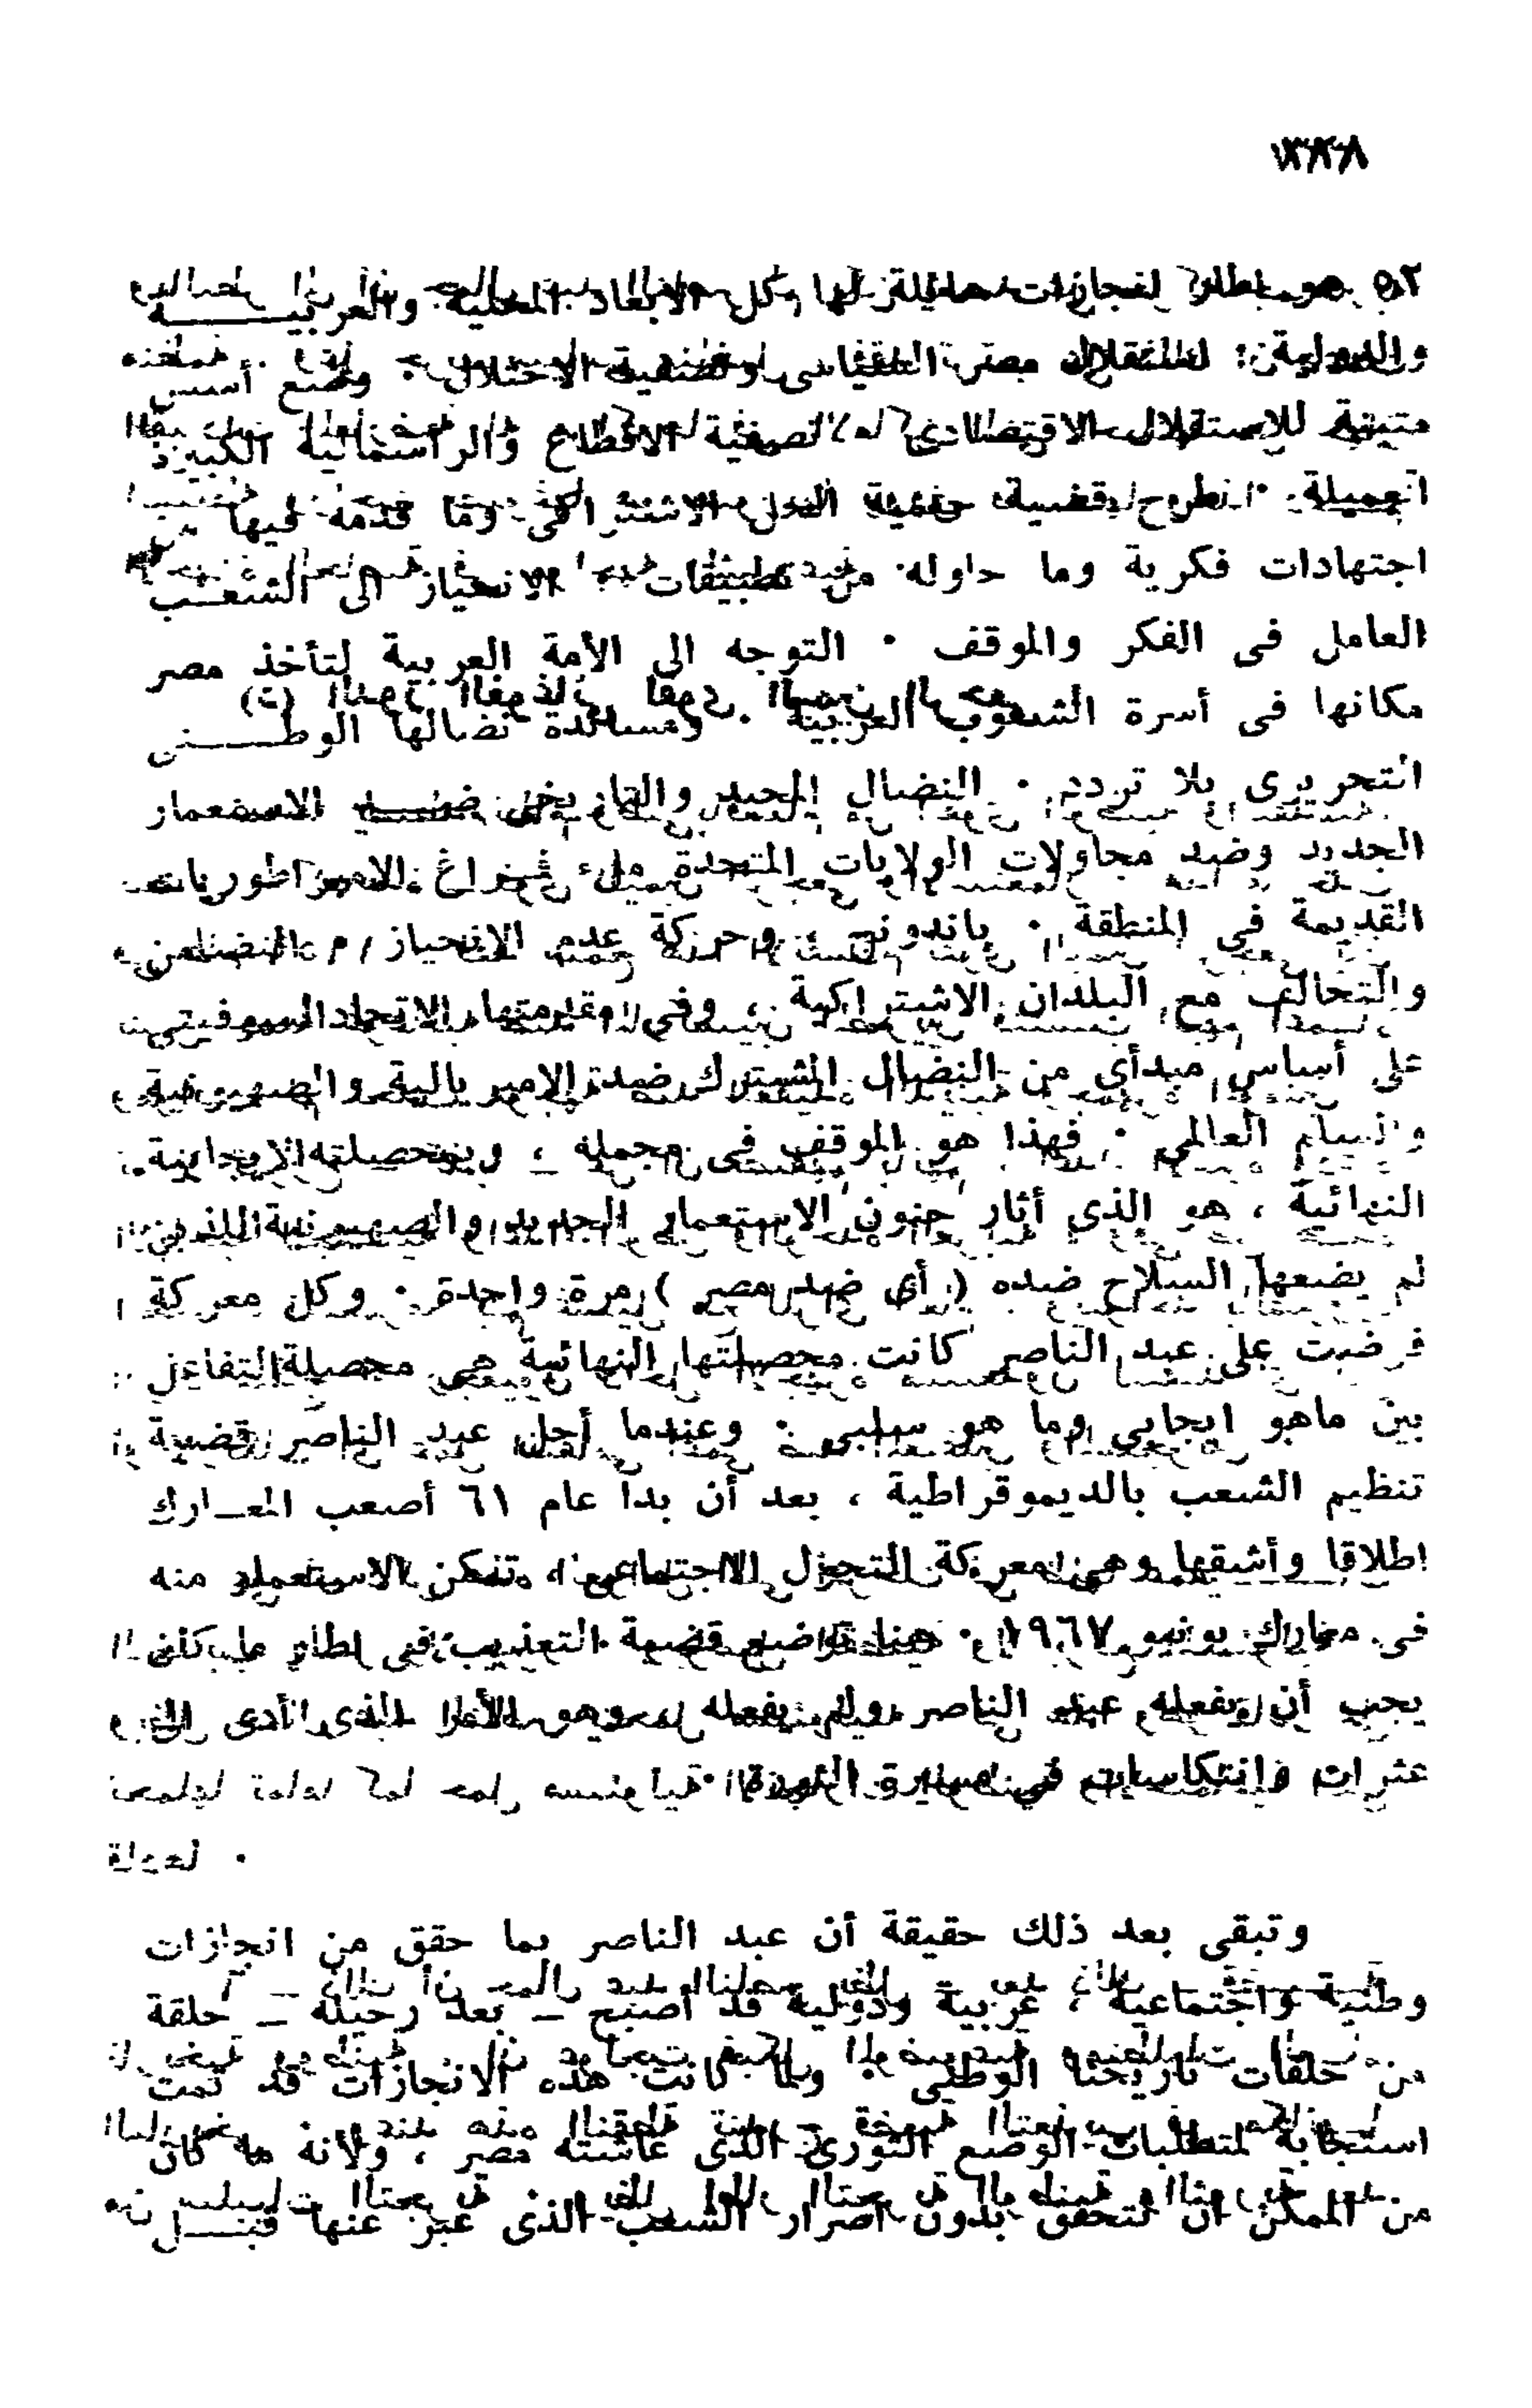 ٥٢ هو اطار لانجازات هائلة لها كل الأبعاد المحلية والعربيـــــة
والدولية : استقلال مصر السياسى وتصفية الاحتلال ٠ وضع أسس
متينة للاستقلال الاقتصادى تصفية الاقطاع والرأسمالية الكبيرة
العميلة ٠ طرح قضية حتمية الحل الاشتراكى وما قدمه فيها من
اجتهادات فكرية وما حاوله من تطبيقات الانحياز الى الشعـــب
العامل فى الفكر والموقف ٠ التوجه الى الأمة العربية لتأخذ مصر
مكانها فى أسرة الشعوب العربية ٠ ومساندة نضالها الوطـــــنى
التحريرى بلا تردد ٠ النضال المجيد والتاريخى ضـــد الاستعمار
الجديد وضد محاولات الولايات المتحدة ملء فراغ الامبراطوريات
القديمة فى المنطقة ٠ باندونج ، وحركة عدم الانحياز ، التضامن
والتحالف مع البلدان الاشتراكية ، وفى مقدمتها الاتحاد السوفيتى
على أساس مبدأى من النضال المشترك ضد الامبريالية والصهيونية
والسلام العالمى ٠ فهذا هو الموقف فى مجمله ، وبمحصلته الايجابية
النهائية ، هو الذى أثار جنون الاستعمار الجديد والصهيونية اللذين
لم يضعا السلاح ضده ( أى ضد مصر ) مرة واحدة ٠ وكل معركة
فرضت على عبد الناصر كانت محصلتها النهائية هى محصلة التفاعل
بين ماهو ايجابى وما هو سلبى ٠ وعندما أجل عبد الناصر قضية
تنظيم الشعب بالديموقراطية ، بعد أن بدأ عام ٦١ أصعب المعــارك
اطلاقا وأشقها وهى معركة التحول الاجتماعى ، تمكن الاستعمار منه
فى معارك يونيو ١٩٦٧ ٠ هنا توضع قضية التعذيب فى اطار ما كان
يجب أن يفعله عبد الناصر ولم يفعله وهو الأمر الذى أدى الى
عثرات وانتكاسات فى مسيرة الثورة ٠
وتبقى بعد ذلك حقيقة أن عبد الناصر بما حقق من انجازات
وطنية واجتماعية ، عربية ودولية قد أصبح – بعد رحيله – حلقة
من حلقات تاريخنا الوطنى ولما كانت هذه الانجازات قد تمت
استجابة لمتطلبات الوضع الثورى الذى عاشته مصر ، ولأنه ما كان
من الممكن أن تتحقق بدون اصرار الشعب الذى عبر عنها قبـــل